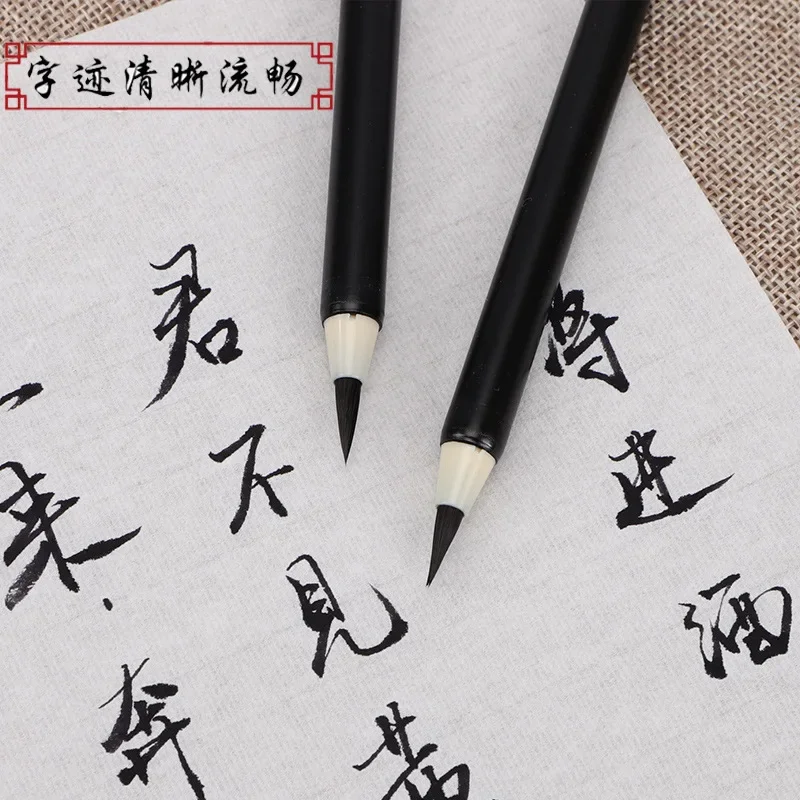 字迹清晰流畅
将进酒
君不见黄
来
奔